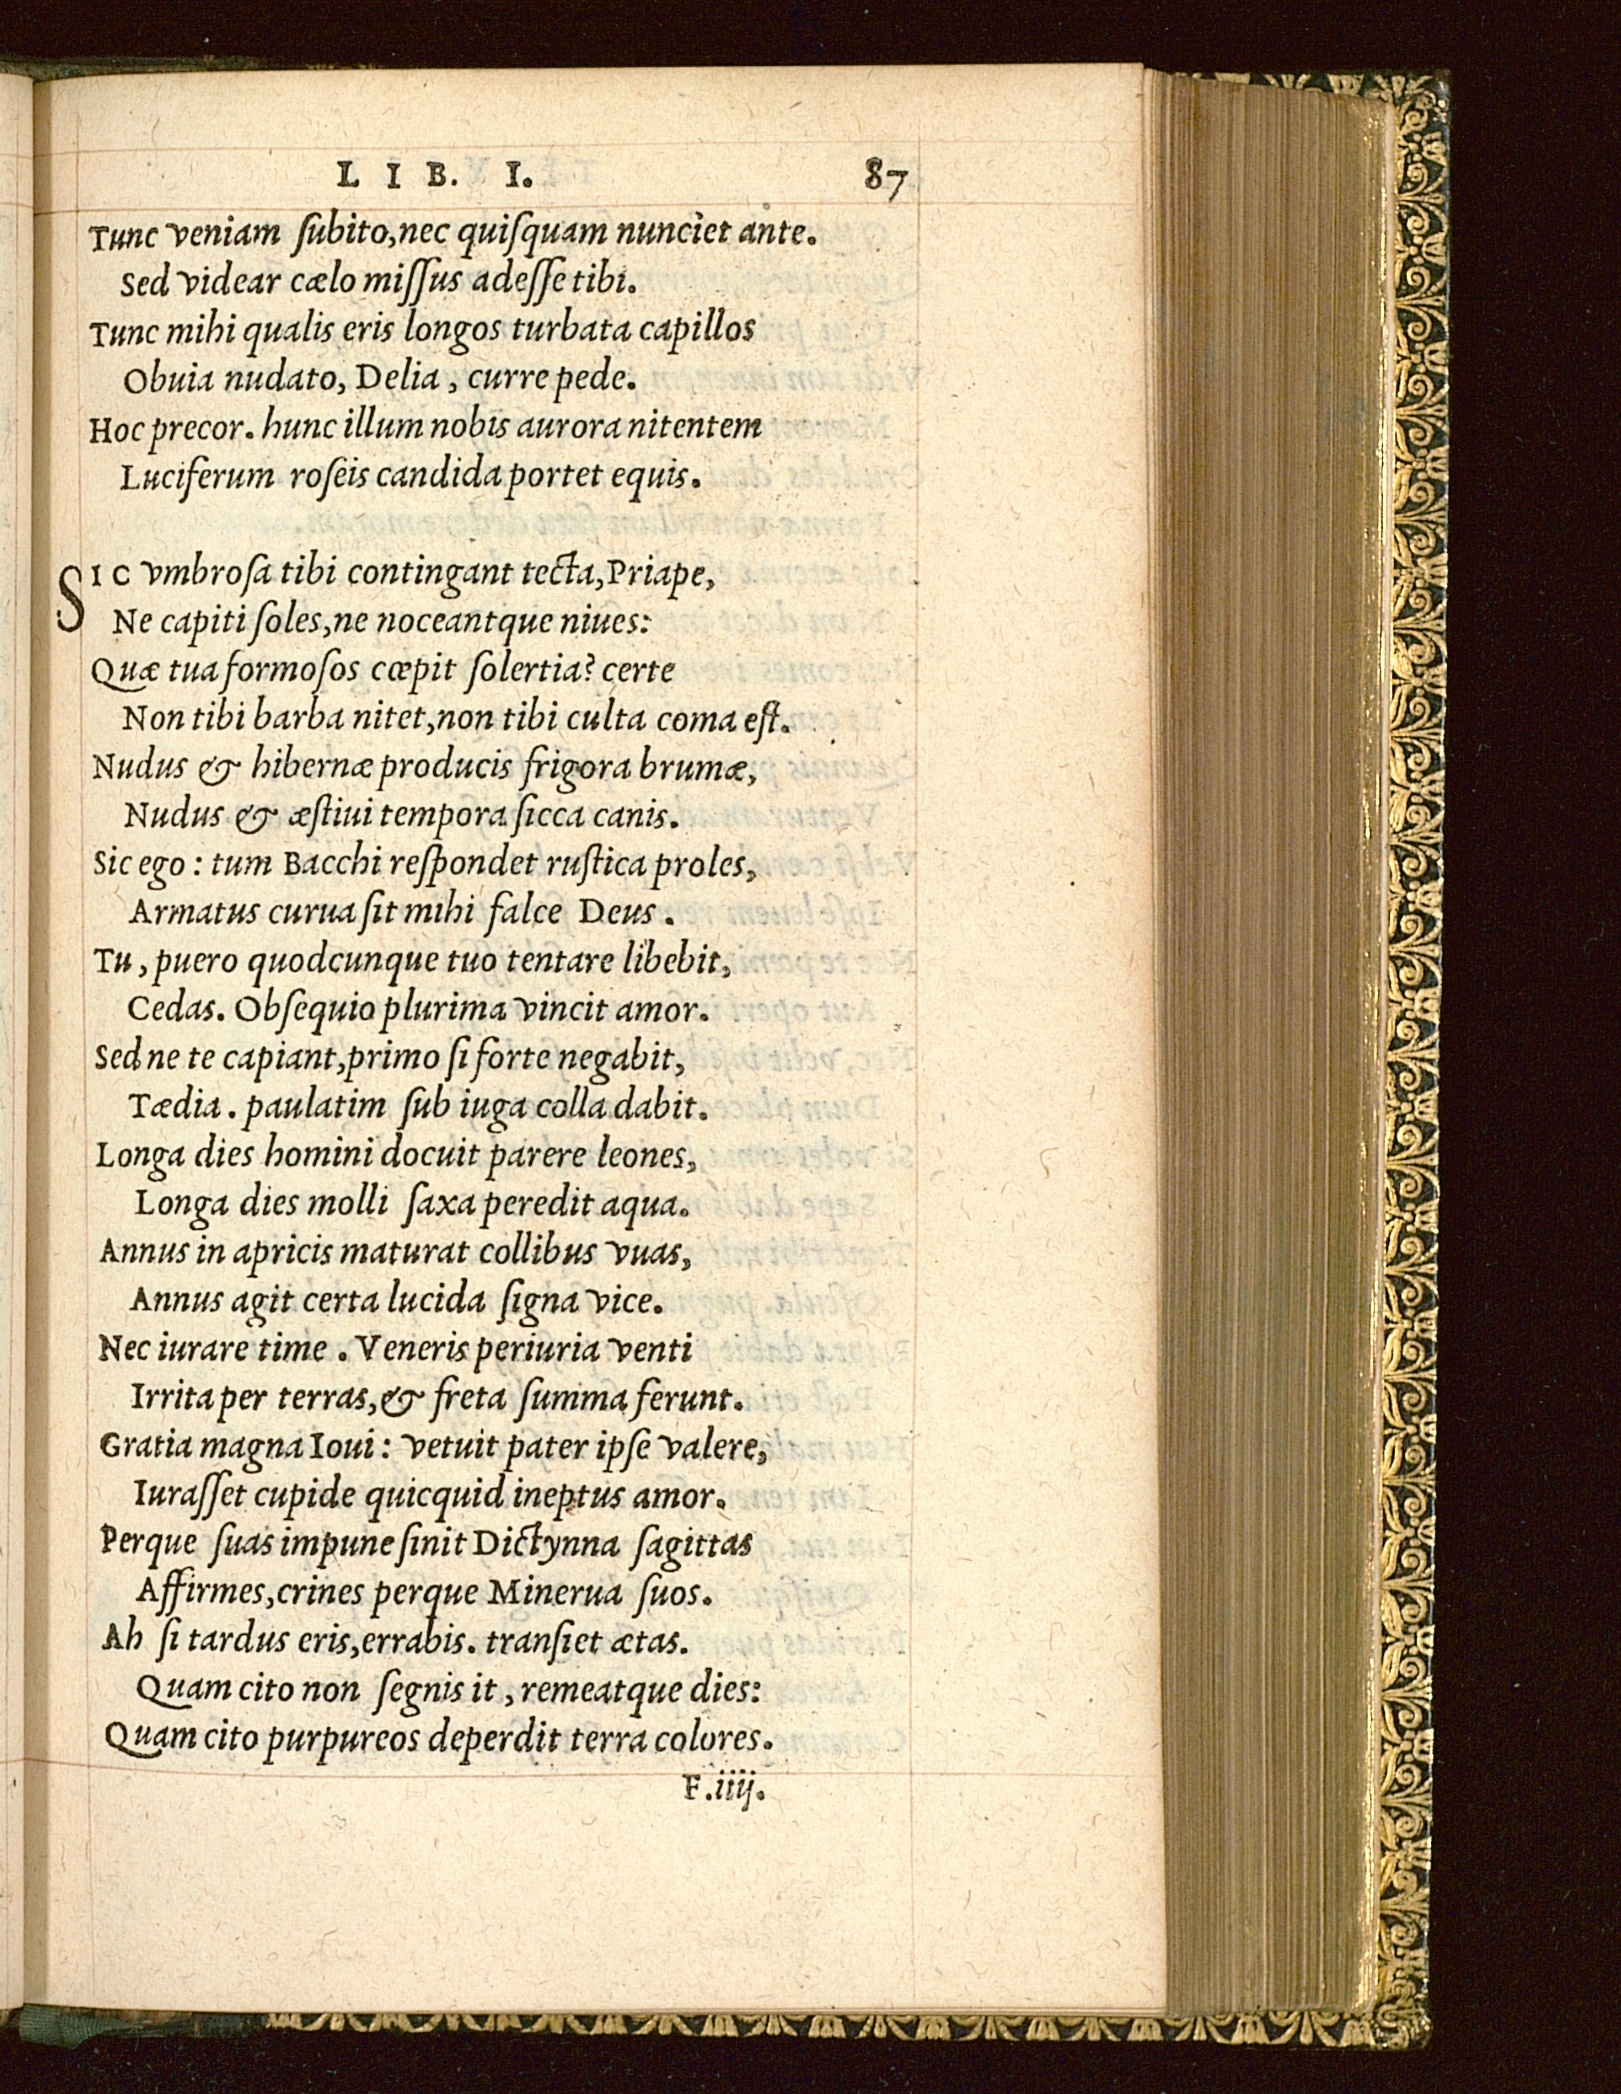 LIB. I. 87
Tunc veniam ſubito, nec quiſquam nunciet ante.
Sed videar cælo miſſus adeſſe tibi.
Tunc mihi qualis eris longos turbata capillos
Obuia nudato, Delia, curre pede.
Hoc precor. hunc illum nobis aurora nitentem
Luciferum roſeis candida portet equis.
SIC vmbroſa tibi contingant tecta, Priape,
Ne capiti ſoles, ne noceantque niues:
Quæ tua formoſos cœpit ſolertia? certe
Non tibi barba nitet, non tibi culta coma eſt.
Nudus & hibernæ producis frigora brumæ,
Nudus & æſtiui tempora ſicca canis.
Sic ego: tum Bacchi reſpondet ruſtica proles,
Armatus curua ſit mihi falce Deus.
Tu, puero quodcunque tuo tentare libebit,
Cedas. Obſequio plurima vincit amor.
Sed ne te capiant, primo ſi forte negabit,
Tædia. paulatim ſub iuga colla dabit.
Longa dies homini docuit parere leones,
Longa dies molli ſaxa peredit aqua.
Annus in apricis maturat collibus vuas,
Annus agit certa lucida ſigna vice.
Nec iurare time. Veneris periuria venti
Irrita per terras, & freta ſumma ferunt.
Gratia magna Ioui: vetuit pater ipſe valere,
Iuraſſet cupide quicquid ineptus amor.
Perque ſuas impune ſinit Dictynna ſagittas
Affirmes, crines perque Minerua ſuos.
Ah ſi tardus eris, errabis. tranſiet ætas.
Quam cito non ſegnis it, remeatque dies:
Quam cito purpureos deperdit terra colores.
F.iiij.